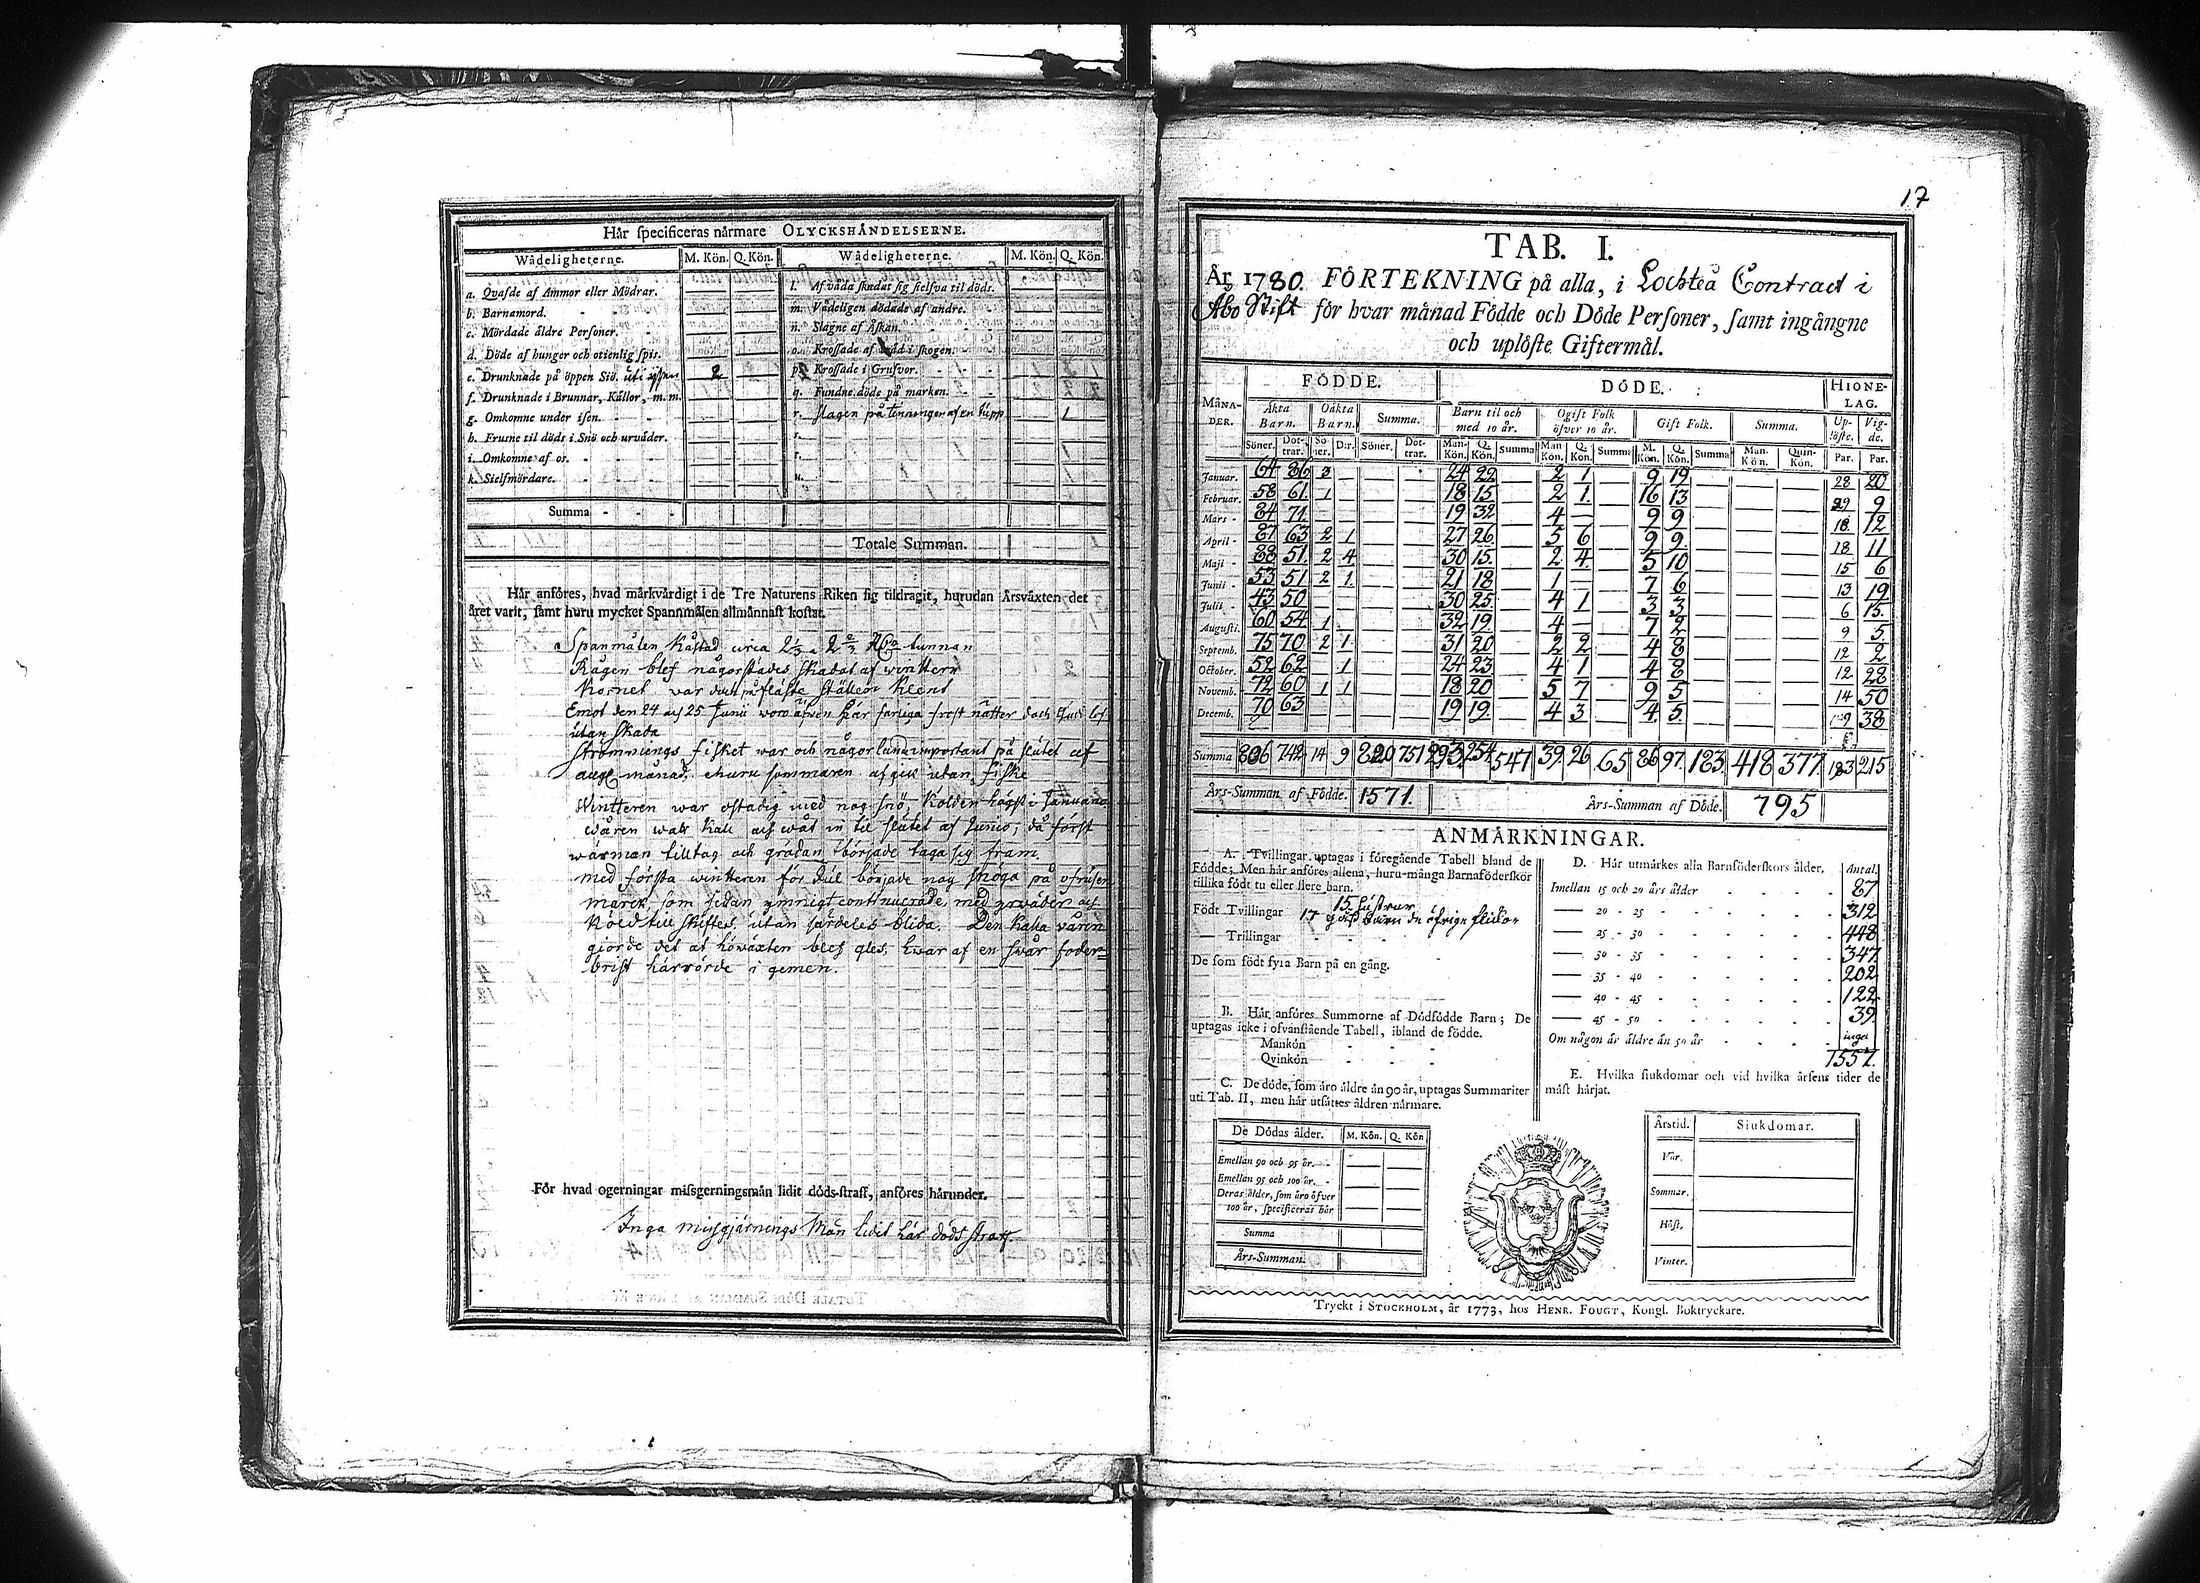 Hår specificeras nårmare OLYCKSHÅNDELSERNE.
Wådeligheterne. M. Kön. Q. Kön. Wådeligheterne. M. Kön. Q. Kön.
a. Qvafde af Ammor eller Mödrar. l. Af våda skadat sig sielfva til döds.
b. Barnamord. m. Vådeligen dödade af andre.
c. Mördade åldre Personer. n. Slagne af Åskan.
d. Döde af hunger och otienlig spis. o. Krossade af träd i skogen.
e. Drunknade på öppen Siö. 2 p. Krossade i Grufvor.
f. Drunknade i Brunnar, Källor, m.m. q. Fundne döde på marken.
g. Omkomne under isen. r. slagen på tinningen af en 1
h. Frusne til döds i Snö och urväder. s.
i. Omkomne af os. t.
k. Sielfmördare. u.
Summa
Totale Summan.
Hår anföres, hvad mårkvårdigt i de Tre Naturens Riken sig tildragit, hurudan Årsvåxten det
året varit, samt huru mycket Spannmålen allmånnast kostat.
Spanmålen kåstad circa 2 1/3 a 2 2/3 tunnan
Rågen blef någorstådes skadat af wintern
Kornet var doch på flåste ställen klent
Emot den 24 och 25 Junii woro åfven hår farliga frost nätter doch Gud lof
utan skada
Strömmings fisket war och någorlunda important på slutet af
aug. månad, ehuru sommaren afgick utan fiske
Wintteren war ostadig med nog snö, kölden högst i Januario
wåren war kall och wåt in til slutet af Junio, då först
wärman tilltog och grödan började taga sig fram.
med första wintteren för Jul började nog snöga på ofrusen
marck, som sedan ymnigt continuerade med yrväder och
köld till skiftes utan särdeles blida. Den kalla våren
giorde det at höwäxten blef gles, hwar af en svår foder-
brist härrörde i gemen.
För hvad ogerningar missgerningsmån lidit döds-straff, anföres hårunder.
Inga missgjärnings Män lidit här döds straff.
17
TAB. I.
År 1780. FÖRTEKNING på alla, i Lochteå Contract i
Åbo Stift för hvar månad Födde och Döde Personer, samt ingångne
och uplöste Giftermål.
MÅNADER. FÖDDE. DÖDE. HIONELAG.
Åkta Barn. Oåkta Barn. Summa. Barn til och med 10 år. Ogift Folk öfver 10 år. Gift Folk. Summa. Uplöste. Vigde.
Söner. Dottrar. Söner. D:r. Söner. Dottrar. Man-Kön. Q. Kön. Summa Man Kön. Q. Kön. Summa M. Kön. Q. Kön. Summa Man-Kön. Quin-Kön. Par. Par.
Januar. 64 86 3 24 22 2 1 9 19 28 20
Februar. 58 61 1 18 15 2 1 16 13 29 9
Mars 84 71 19 32 4 9 9 18 12
April 87 63 2 1 27 26 5 6 9 9 18 11
Maji 88 51 2 4 30 15 2 4 5 10 15 6
Junii 53 51 2 1 21 18 1 7 6 13 19
Julii 43 50 30 25 4 1 3 3 6 15
Augusti. 60 54 1 32 19 4 7 2 9 5
Septemb. 75 70 2 1 31 20 2 2 4 8 12 2
October. 52 62 1 24 23 4 1 4 8 12 28
Novemb. 72 60 1 1 18 20 5 7 9 5 14 50
Decemb. 70 63 19 19 4 3 4 5 9 38
Summa 806 742 14 9 820 751 293 254 547 39 26 65 86 97 183 418 377 183 215
Års-Summan af Födde. 1571. Års-Summan af Döde. 795
ANMÅRKNINGAR.
A. Tvillingar uptagas i föregående Tabell bland de
Födde; Men hår anföres allena, huru många Barnaföderskor
tillika födt tu eller flere barn.
Födt Tvillingar 15 hustrur
17 gåss barn de öfrige flickor
— Trillingar
De som födt fyra Barn på en gång.
B. Hår anföres Summorne af Dödfödde Barn; De
uptagas icke i ofvanstående Tabell, ibland de födde.
Mankön
Qvinkön
C. De döde, som äro åldre ån 90 år, uptagas Summariter
uti Tab. II, men hår utsåttes åldren nårmare.
De Dödas ålder. M. Kön. Q. Kön
Emellan 90 och 95 år.
Emellan 95 och 100 år.
Deras ålder, som äro öfver
100 år, specificeras hår
Summa
Års-Summan.
D. Hår utmårkes alla Barnföderskors ålder. Antal.
Imellan 15 och 20 års ålder 87
— 20 - 25 312
— 25 - 30 448
— 30 - 35 347
— 35 - 40 202
— 40 - 45 122
— 45 - 50 39
Om någon år åldre ån 50 år inga
1557.
E. Hvilka siukdomar och vid hvilka årsens tider de
måst hårjat.
Årstid. Siukdomar.
Vår.
Sommar.
Höst.
Vinter.
Tryckt i STOCKHOLM, år 1773, hos HENR. FOUGT, Kongl. Boktryckare.